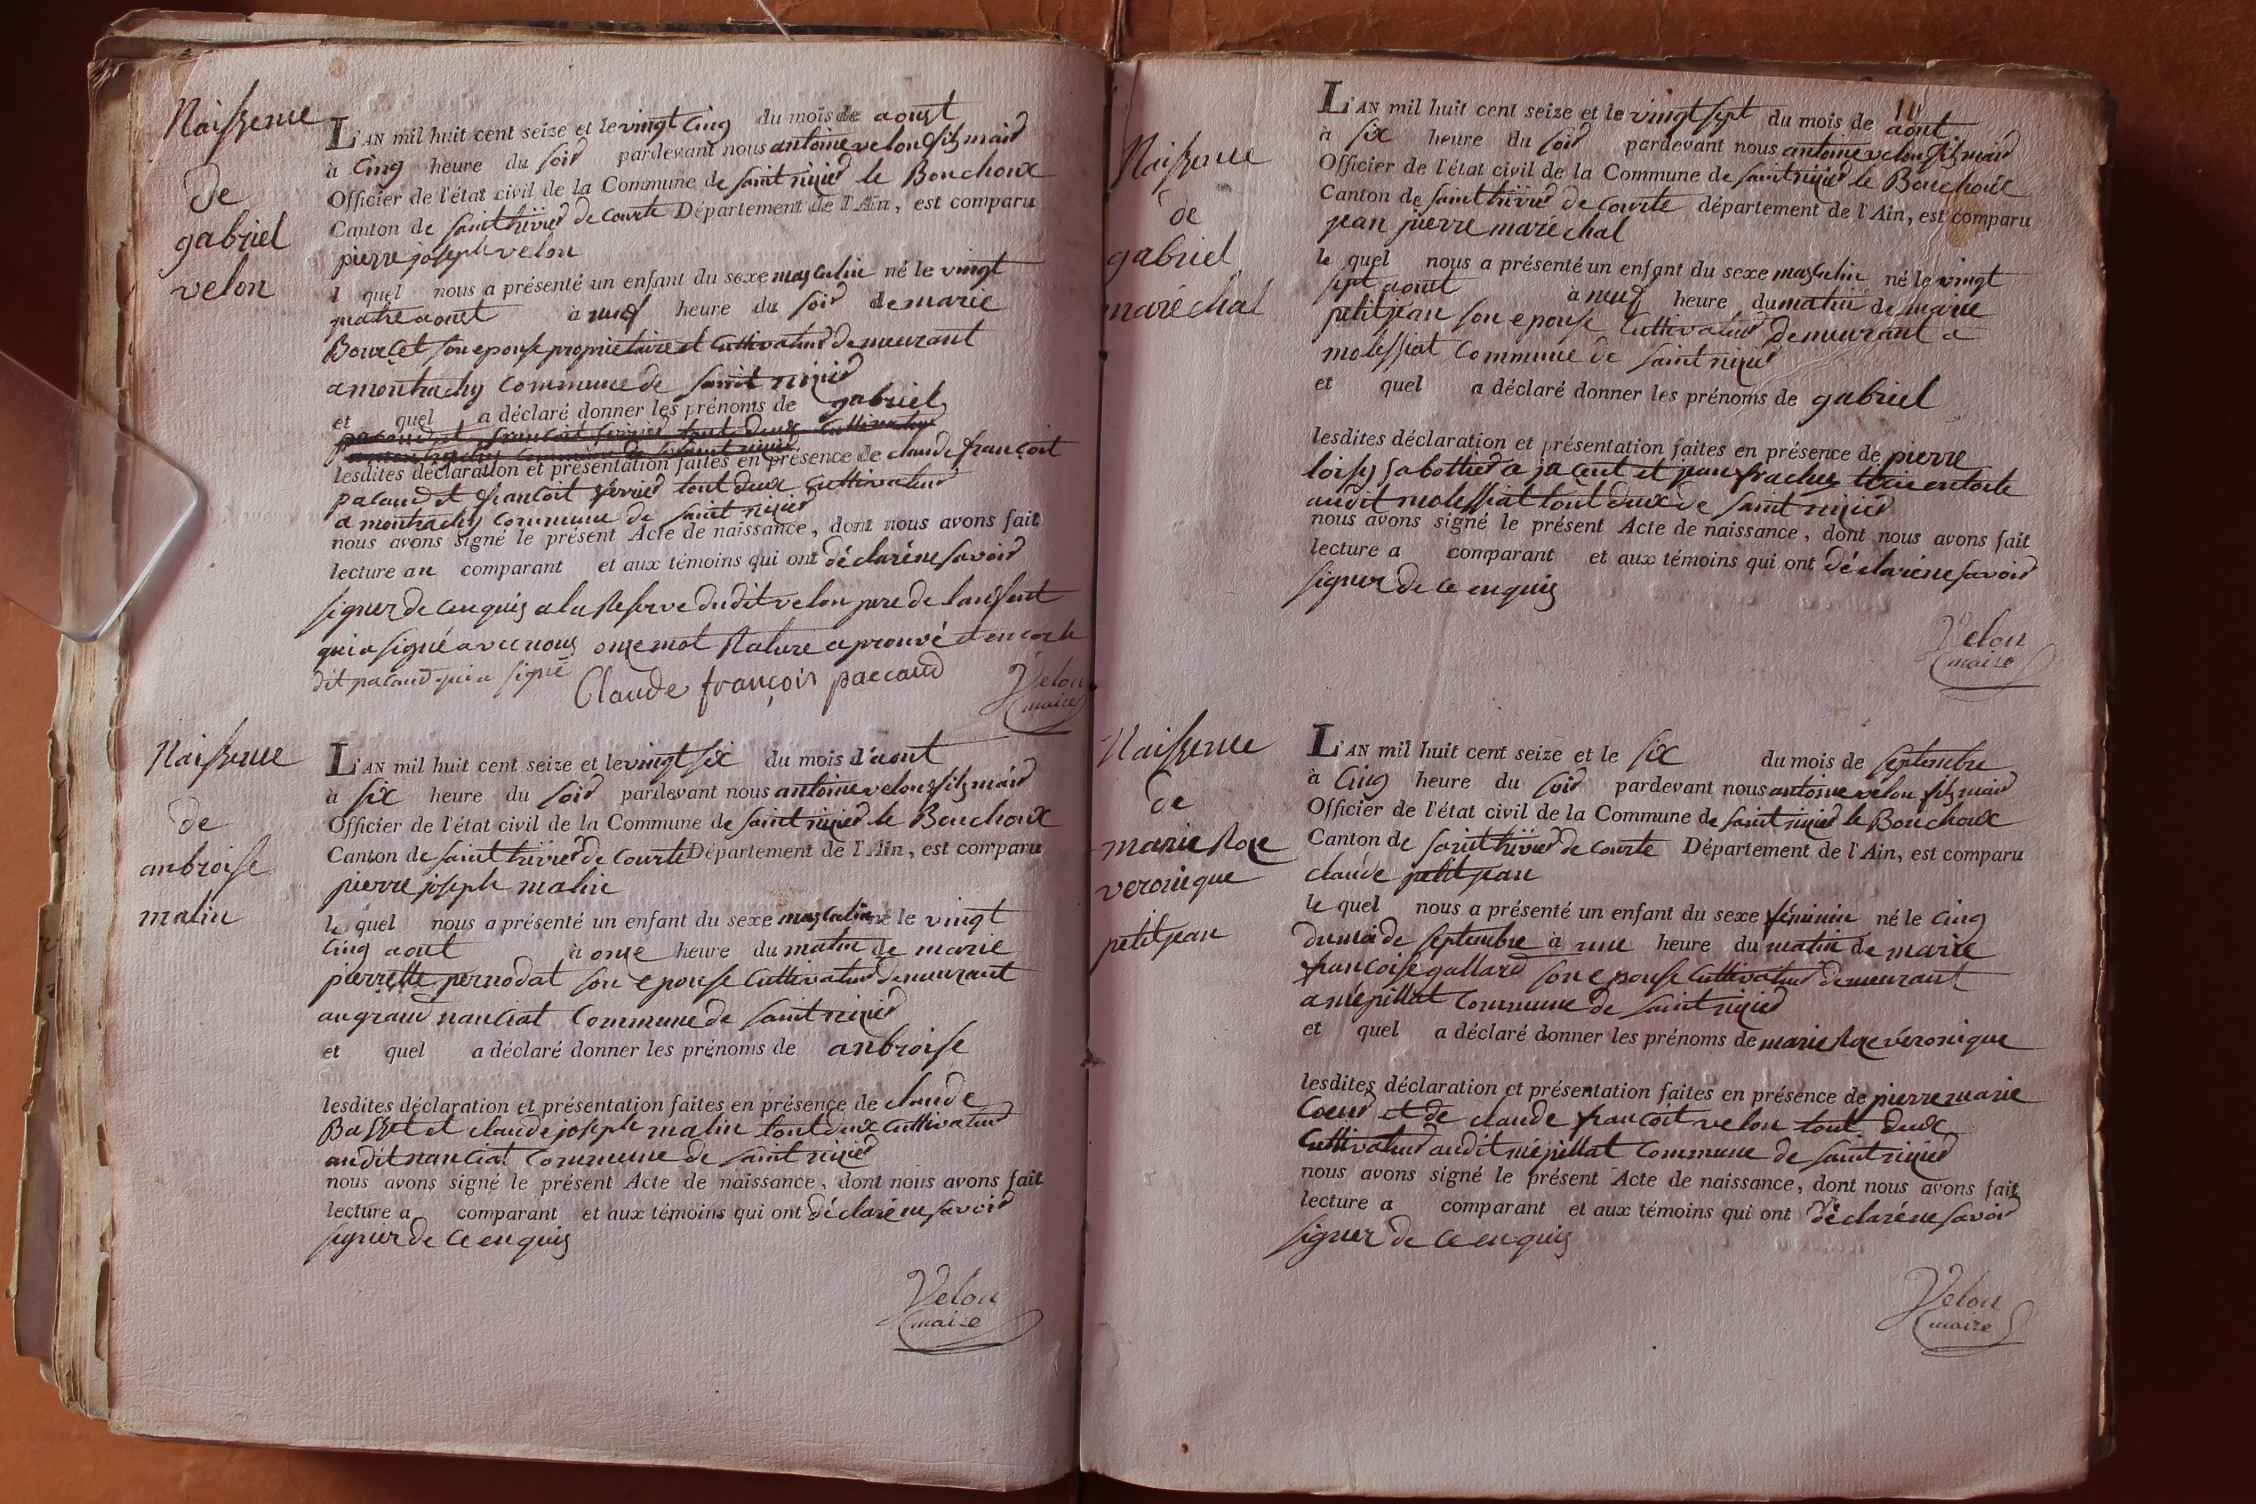 Naissence
de
gabriel
velon
L'AN mil huit cent seize et le vingt cinq du mois de aoust
à cinq heure du soir pardevant nous antoine velon fils maire
Officier de l'état civil de la Commune de saint nizier le Bouchoux
Canton de saint trivier de courte Département de l'Ain, est comparu
pierre joseph velon
l quel nous a présenté un enfant du sexe masculin né le vingt
quatre aoust à neuf heure du soir de marie
Bourcet son epouse proprietaire et Cultivateur demeurant
a montrachy commune de saint nizier
et quel a déclaré donner les prénoms de gabriel
lesdites déclaration et présentation faites en présence de claude françoit
pacaud et françoit tout deux cultivateur
a montrachy commune de saint nizier
nous avons signé le présent Acte de naissance, dont nous avons fait
lecture au comparant et aux témoins qui ont déclaré ne savoir
signer de ce enquis a la Reserve dudit velon pere de l'ansfent
qui a signé avec nous onze mot Rature aprouvé et encorle
dit pacaud qui a signé
Claude françois paccaud
Velon
maire
Naissence
de
anbroise
malin
L'AN mil huit cent seize et le vingt six du mois d'aout
à six heure du soir pardevant nous antoine velon fils maire
Officier de l'état civil de la Commune de saint nizier le Bouchoux
Canton de saint trivier de courte Département de l'Ain, est comparu
pierre joseph malin
le quel nous a présenté un enfant du sexe masculin né le vingt
cinq aout à onse heure du matin de marie
pierrette pernodat son epouse cultivateur demeurant
au grand nanciat Commune de saint nizier
et quel a déclaré donner les prénoms de anbroise
lesdites déclaration et présentation faites en présence de claude
Basset et claude joseph malin tout deux cultivateur
audit nanciat commune de saint nizier
nous avons signé le présent Acte de naissance, dont nous avons fait
lecture a comparant et aux témoins qui ont déclaré ne savoir
signer de ce enquis
Velon
maire
Naissence
de
gabriel
maréchal
L'AN mil huit cent seize et le vingt sept du mois de aout
à six heure du soir pardevant nous antoine velon fils maire
Officier de l'état civil de la Commune de saint nizier le Bouchoux
Canton de saint trivier de courte département de l'Ain, est comparu
jean pierre maréchal
le quel nous a présenté un enfant du sexe masculin né le vingt
sept aout à neuf heure du matin de marie
petitjean son epouse Cultivateur demeurant a
molissiat commune de saint nizier
et quel a déclaré donner les prénoms de gabriel
lesdites déclaration et présentation faites en présence de pierre
loisy sabottier a jacent et jean frachey
audit molissiat tout deux de saint nizier
nous avons signé le présent Acte de naissance, dont nous avons fait
lecture a comparant et aux témoins qui ont déclaré ne savoir
signer de ce enquis
Velon
maire
Naissence
de
marie Rose
veronique
petitjean
L'AN mil huit cent seize et le six du mois de septembre
à cinq heure du soir pardevant nous antoine velon fils maire
Officier de l'état civil de la Commune de saint nizier le Bouchoux
Canton de saint trivier de courte Département de l'Ain, est comparu
claude petitjean
le quel nous a présenté un enfant du sexe féminin né le cinq
du moi de septembre à une heure du matin de marie
françoise gallard son epouse cultivateur demeurant
a mépillat commune de saint nizier
et quel a déclaré donner les prénoms de marie Rose veronique
lesdites déclaration et présentation faites en présence de pierre marie
Coeur et de claude françoit velon tout deux
cultivateur audit mépillat commune de saint nizier
nous avons signé le présent Acte de naissance, dont nous avons fait
lecture a comparant et aux témoins qui ont déclaré ne savoir
signer de ce enquis
Velon
maire